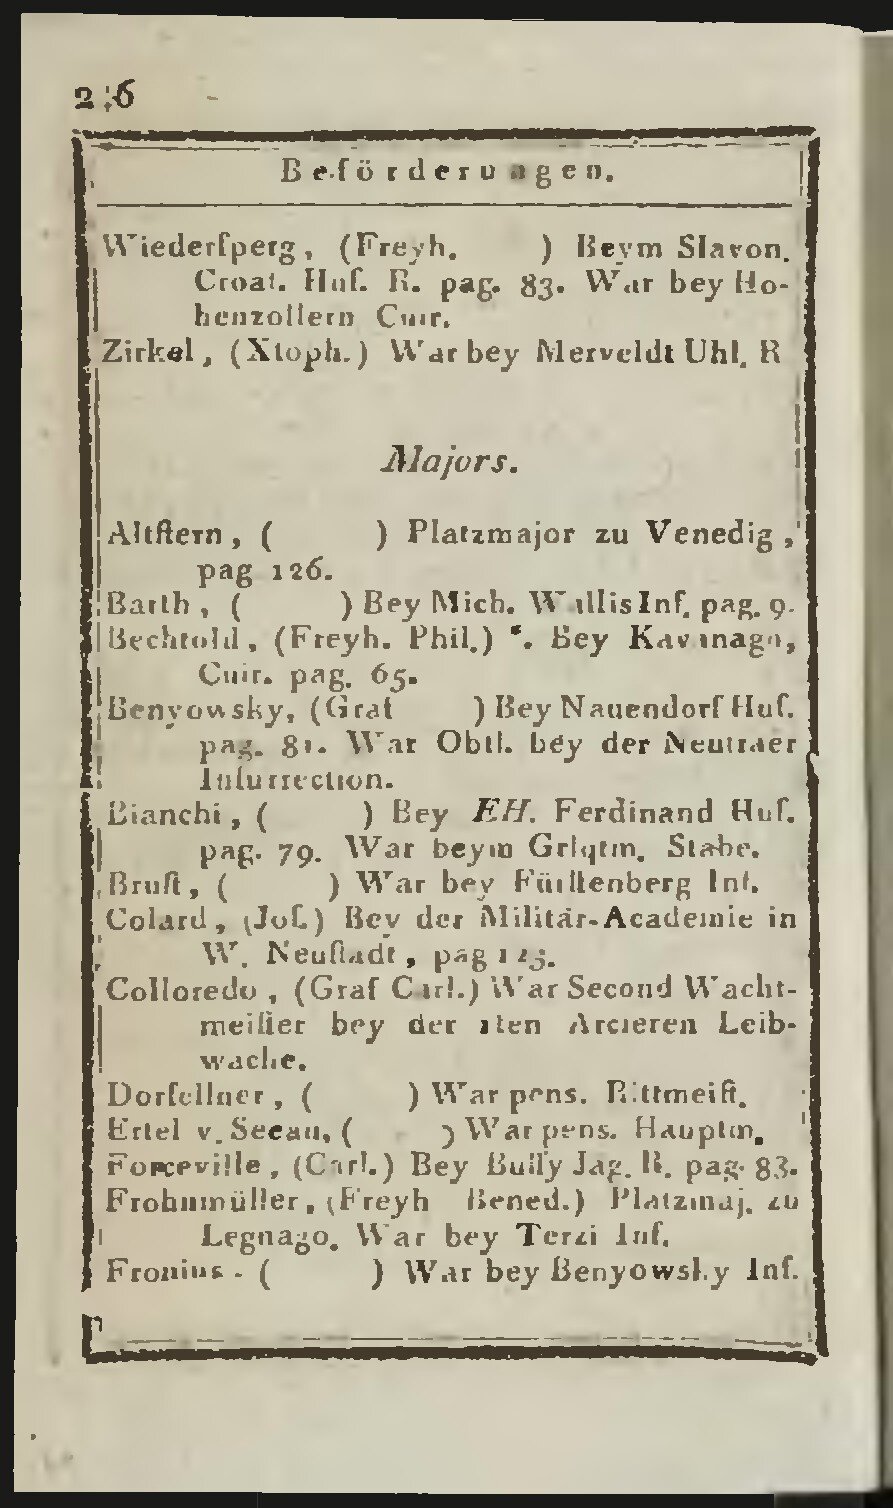 2:6
Beförderungen.
Wiederſperg, (Freyh. ) Beym Slavon.
Croat. Huſ. R. pag. 83. War bey Ho-
henzollern Cuir.
Zirkel, (Xtoph.) War bey Merveldt Uhl. R
Majors.
Altſtern, ( ) Platzmajor zu Venedig,
pag 126.
Barth, ( ) Bey Mich. Wallis Inf. pag. 9.
Bechtold, (Freyh. Phil.) *. Bey Kavanagh,
Cuir. pag. 65.
Benyowsky, (Graf ) Bey Nauendorf Huſ.
pag. 81. War Obtl. bey der Neutraer
Inſurrection.
Bianchi, ( ) Bey EH. Ferdinand Huſ.
pag. 79. War beym Grlqtm. Stabe.
Bruſt, ( ) War bey Fürſtenberg Inf.
Colard, (Joſ.) Bey der Militär-Academie in
W. Neuſtadt, pag 125.
Colloredo, (Graf Carl.) War Second Wacht-
meiſter bey der 1ten Arcieren Leib-
wache.
Dorfellner, ( ) War pens. Rittmeiſt.
Ertel v. Seeau, ( ) War pens. Hauptm.
Forceville, (Carl.) Bey Buſſy Jag. R. pag. 83.
Frohnmüller, (Freyh Bened.) Platzmaj. zu
Legnago. War bey Terzi Inf.
Fronius - ( ) War bey Benyowsky Inf.